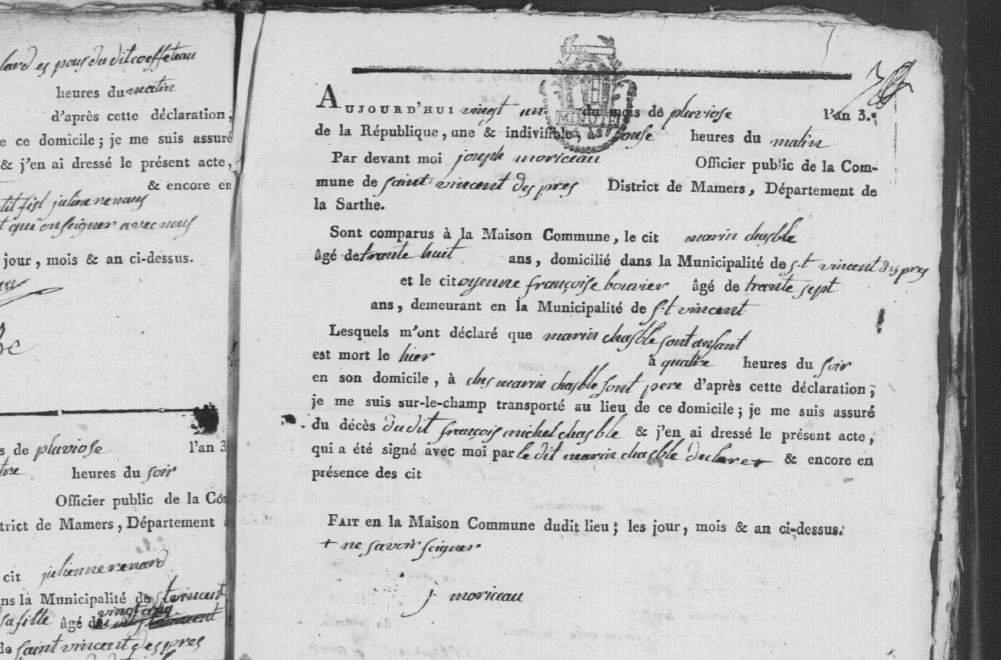 lard es pous du dit coeffeteau
heures du matin
d'après cette déclaration,
e ce domicile; je me suis assuré
& j'en ai dressé le présent acte,
& encore en
tit fist julien renaus
t qui onseigner avec nous
jour, mois & an ci-dessus.
s de pluviose l'an 3
heures du soir
Officier public de la Com
trict de Mamers, Département
cit julienne renard
ns la Municipalité de st vincent
sa fille âgé de vingt cinq
de saint vincent des pres
MINUTE
AUJOURD'HUI vingt un du mois de pluviose l'an 3.
de la République, une & indivisible, à onse heures du matin
Par devant moi joseph moriceau Officier public de la Com-
mune de saint vincent des pres District de Mamers, Département de
la Sarthe.
Sont comparus à la Maison Commune, le cit marin chasble
âgé de trante huit ans, domicilié dans la Municipalité de s.t vincent des pres
et le citoyenne françoise bouvier âgé de trante sept
ans, demeurant en la Municipalité de s.t vincent
Lesquels m'ont déclaré que marin chasble sont ansant
est mort le hier à quatre heures du soir
en son domicile, à ches marin chasble sont pere d'après cette déclaration;
je me suis sur-le-champ transporté au lieu de ce domicile; je me suis assuré
du décès du dit françois michel chasble & j'en ai dressé le présent acte,
qui a été signé avec moi par le dit marin chasble declare + & encore en
présence des cit
FAIT en la Maison Commune dudit lieu; les jour, mois & an ci-dessus.
+ ne savoir seigner
j moriceau